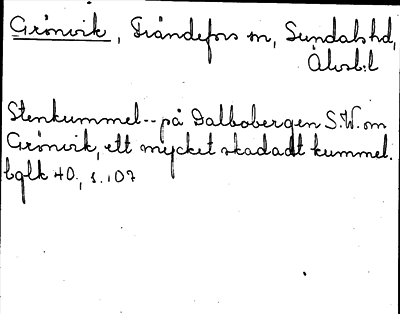 Grönvik, Frändefors sn, Sundals hd,
Älvsb.l
Stenkummel -- på Dalbobergen S.W. om
Grönvik, ett mycket skadadt kummel.
bglk 40, s. 107